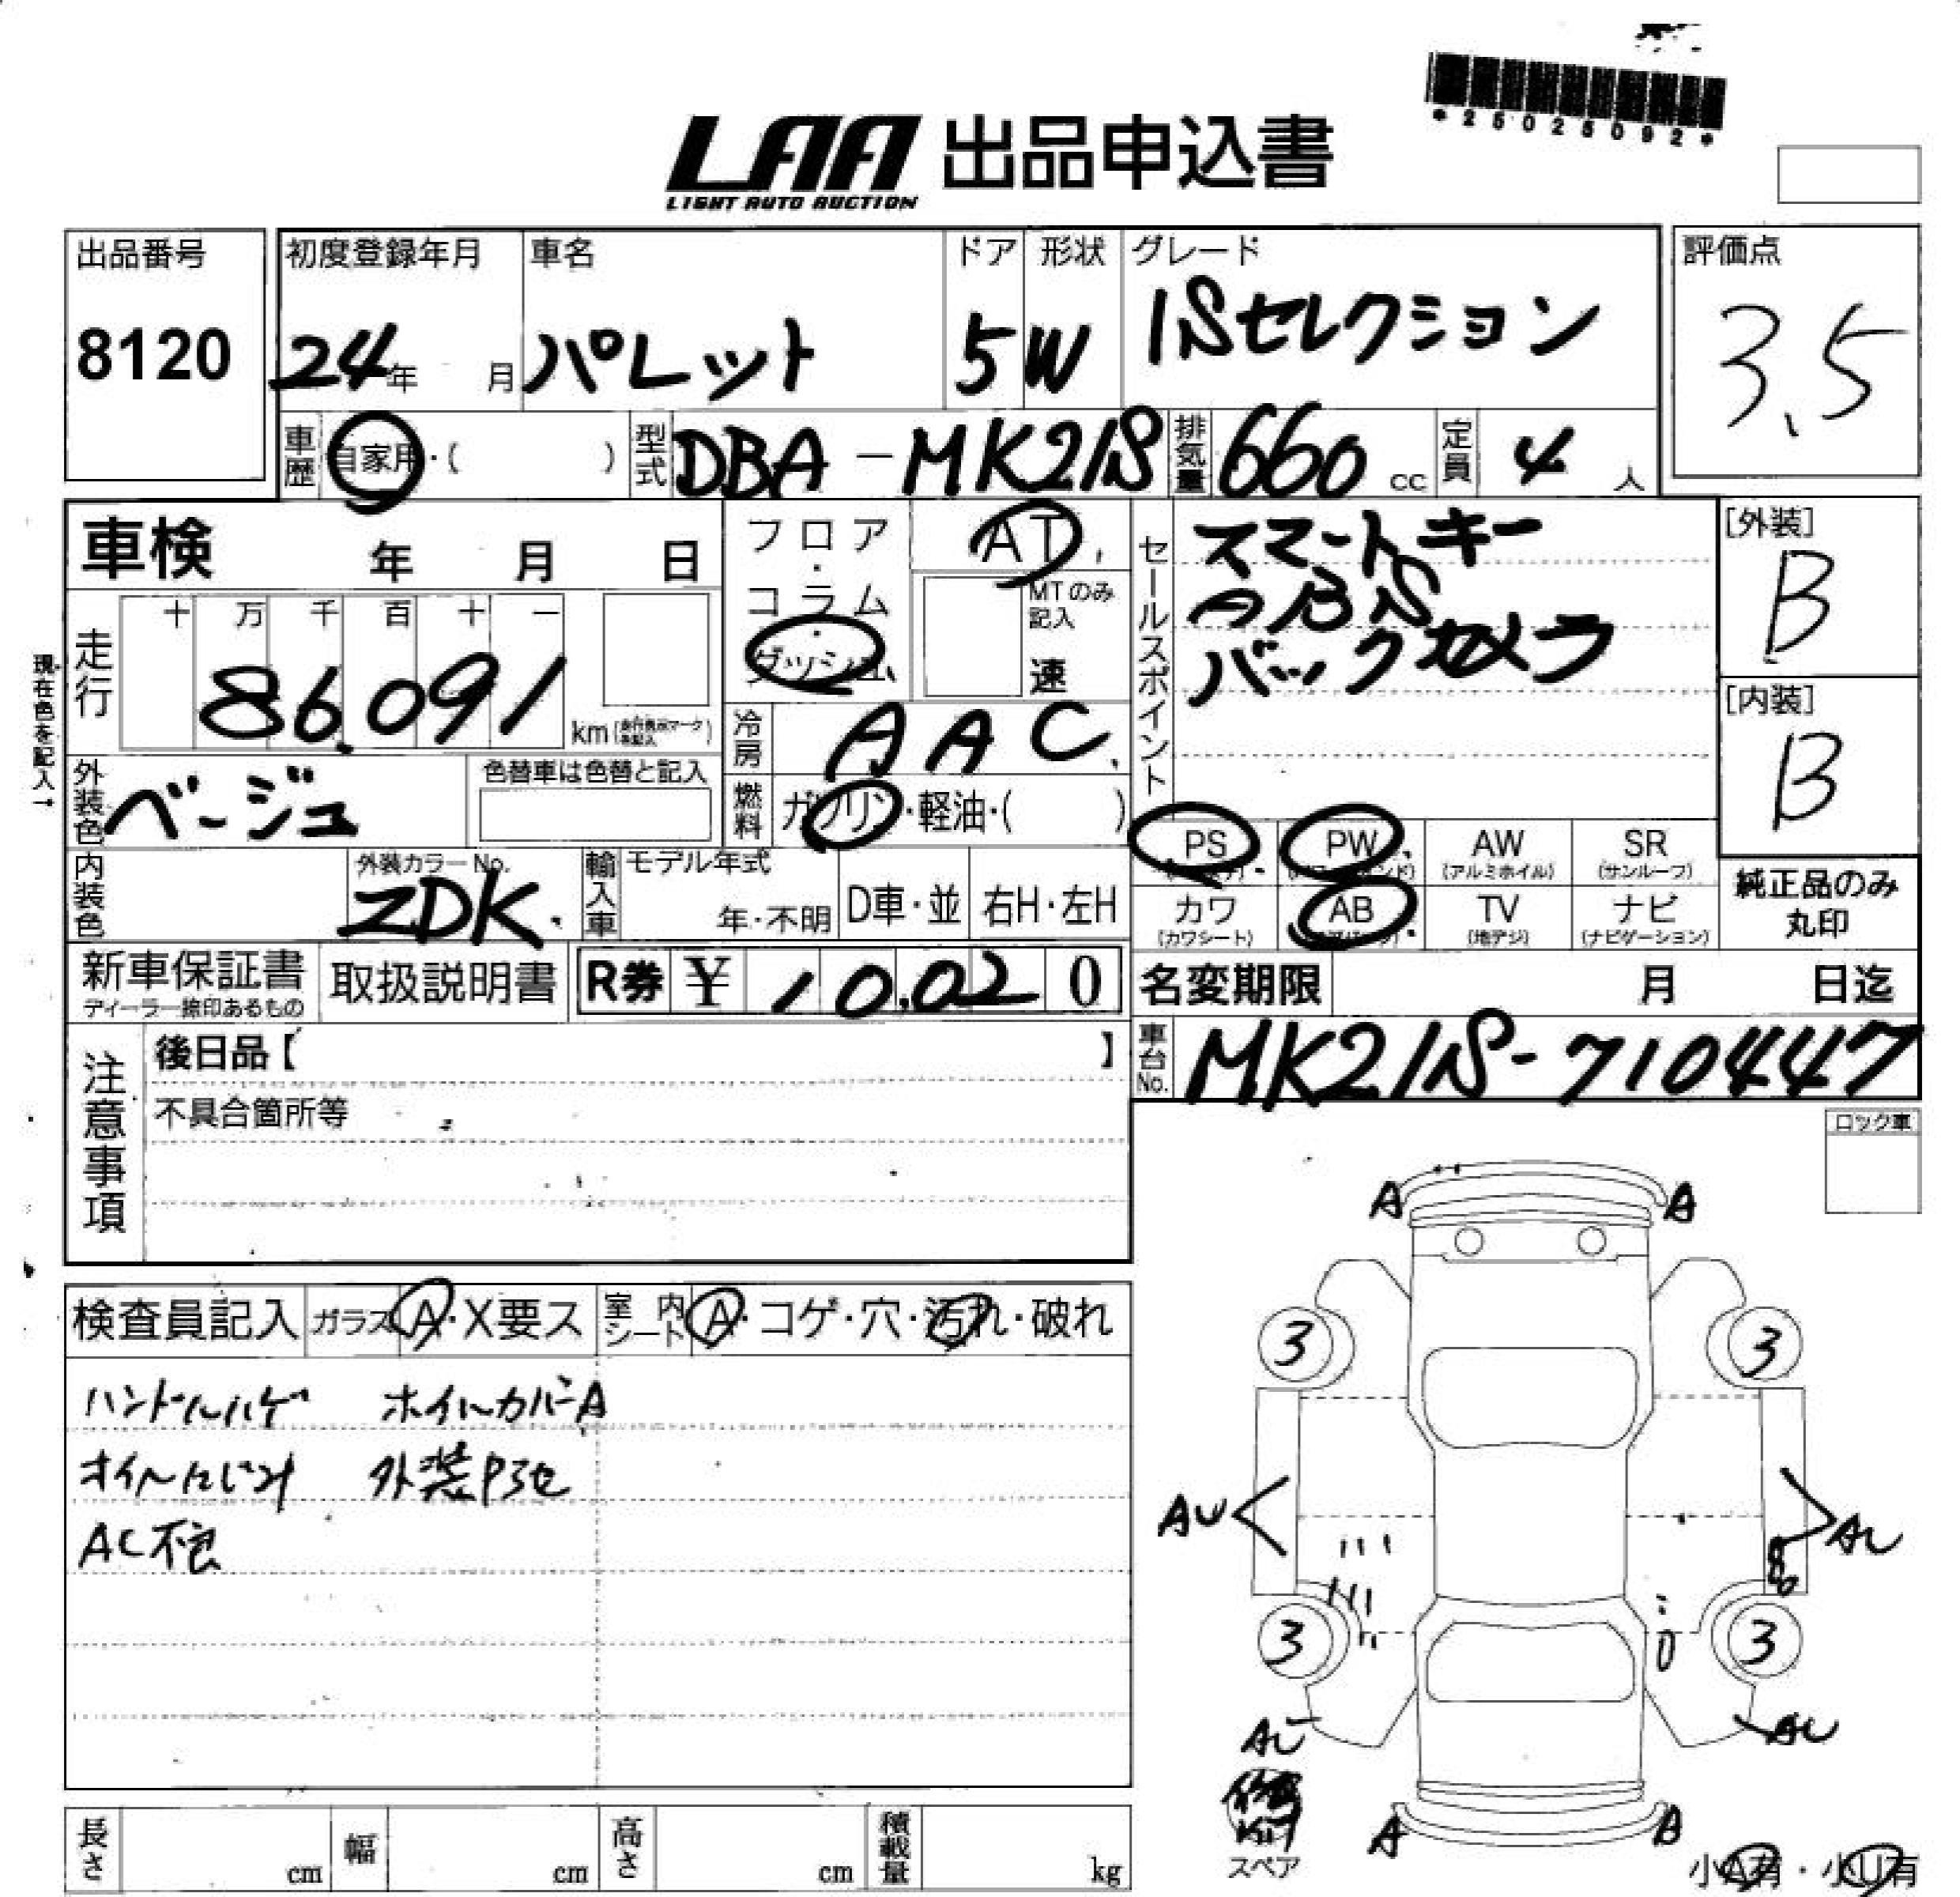 *25025092*
LAA 出品申込書
LIGHT AUTO AUCTION
出品番号
8120
初度登録年月
24年 月
車名
パレット
ドア
5
形状
W
グレード
ISセレクション
評価点
3.5
車歴
自家用・( )
型式
DBA-MK21S
排気量
660 cc
定員
4 人
車検 年 月 日
フロア・コラム・ダッシュ
AT
MTのみ記入
速
セールスポイント
スマートキー
ABS
バックカメラ
[外装]
B
[内装]
B
現在色を記入→
走行
十 万 千 百 十 一
86,091
km
冷房
AAC
外装色
ベージュ
色替車は色替と記入
燃料
ガソリン・軽油・( )
PS
PW
AW
(アルミホイル)
SR
(サンルーフ)
内装色
外装カラーNo.
ZDK
輸入車
モデル年式
年・不明
D車・並
右H・左H
カワ
(カワシート)
AB
TV
(地デジ)
ナビ
(ナビゲーション)
純正品のみ
丸印
新車保証書
ディーラー捺印あるもの
取扱説明書
R券 ¥ 10,020
名変期限 月 日迄
車台No.
MK21S-710447
注意事項
後日品【 】
不具合箇所等
ロック車
検査員記入
ガラス A・X要ス
室内シート A・コゲ・穴・汚れ・破れ
ハンドルハゲ ホイルカバーA
オイルにじみ
外装
AC不良
A A
3 3
AU AU
3 3
AU AU
KIT
スペア
A A
小A有・小U有
長さ cm
幅 cm
高さ cm
積載量 kg